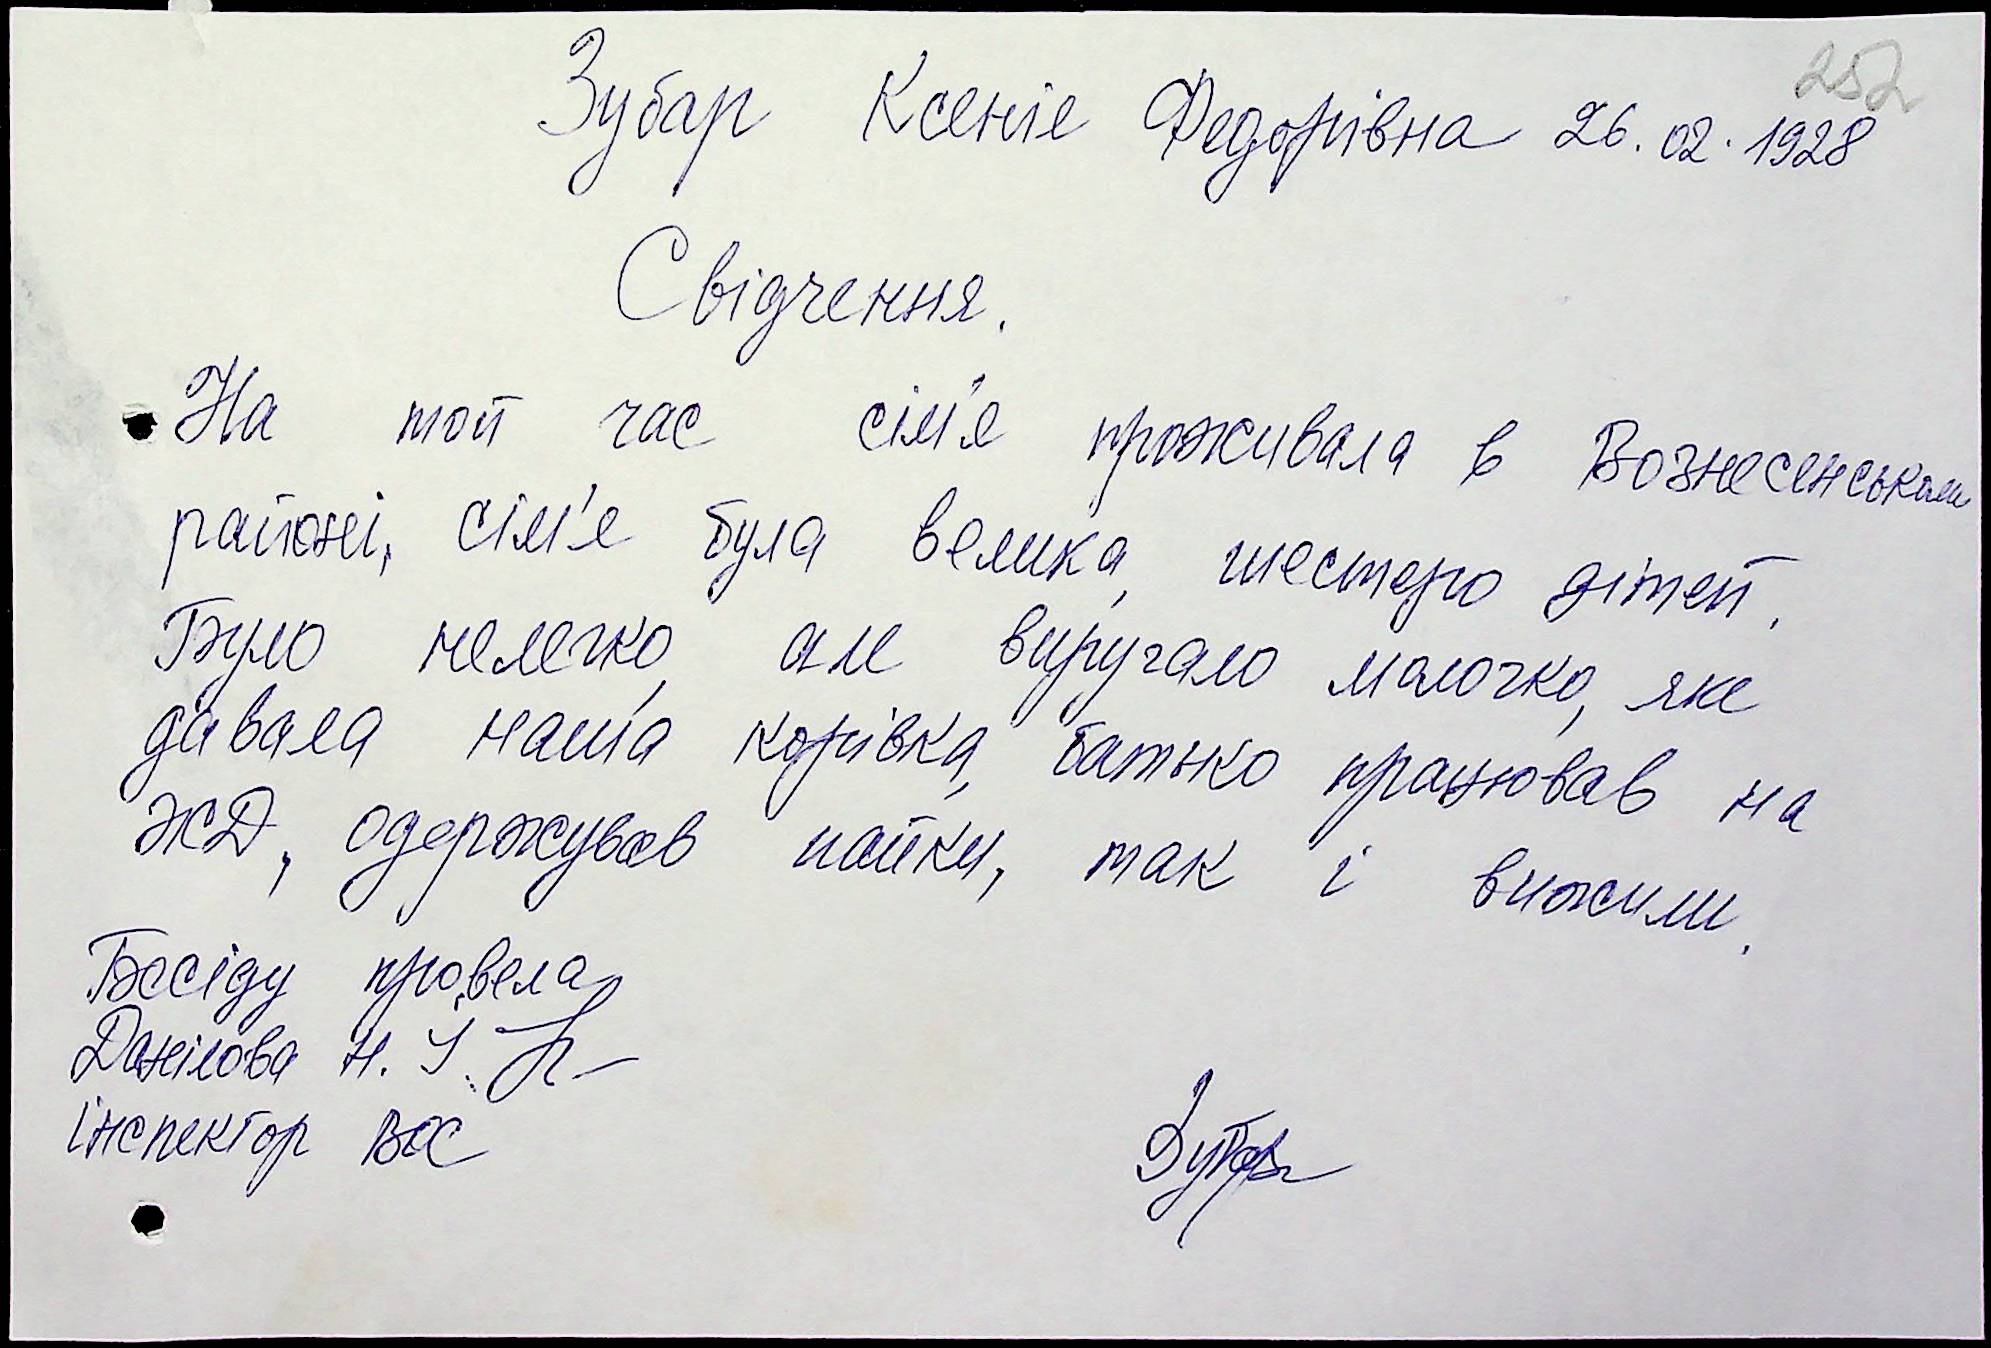 252
Зубар Ксеніє Федорівна 26.02.1928
Свідчення.
На той час сім'я проживала в Вознесенськом
районі, сім'я була велика, шестеро дітей.
Було нелегко, але виручало молочко, яке
давала наша корівка, батько працював на
ЖД, одержував пайки, так і вижили.
Бесіду провела
Данілова Н. І.
інспектор ВОС
Зубар